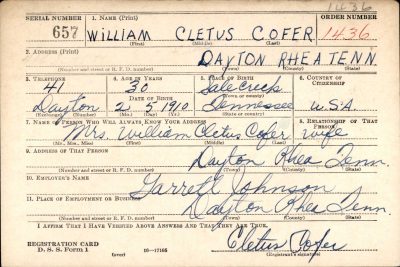 1436
SERIAL NUMBER 1. NAME (Print) ORDER NUMBER
657 WILLIAM CLETUS COFER 1436
(First) (Middle) (Last)
2. ADDRESS (Print)
DAYTON RHEA TENN.
(Number and street or R. F. D. number) (Town) (County) (State)
3. TELEPHONE 4. AGE IN YEARS 5. PLACE OF BIRTH 6. COUNTRY OF CITIZENSHIP
41 30 Sale Creek
DATE OF BIRTH (Town or county)
Dayton 2 5 1910 Tennessee U.S.A.
(Exchange) (Number) (Mo.) (Day) (Yr.) (State or country)
7. NAME OF PERSON WHO WILL ALWAYS KNOW YOUR ADDRESS 8. RELATIONSHIP OF THAT PERSON
Mrs. William Cletus Cofer wife
(Mr., Mrs., Miss) (First) (Middle) (Last)
9. ADDRESS OF THAT PERSON
Dayton Rhea Tenn.
(Number and street or R. F. D. number) (Town) (County) (State)
10. EMPLOYER'S NAME
Garrett Johnson
11. PLACE OF EMPLOYMENT OR BUSINESS
Dayton Rhea Tenn.
(Number and street or R. F. D. number) (Town) (County) (State)
I AFFIRM THAT I HAVE VERIFIED ABOVE ANSWERS AND THAT THEY ARE TRUE.
REGISTRATION CARD
D. S. S. Form 1 Cletus Cofer
(over) 16—17105 (Registrant's signature)